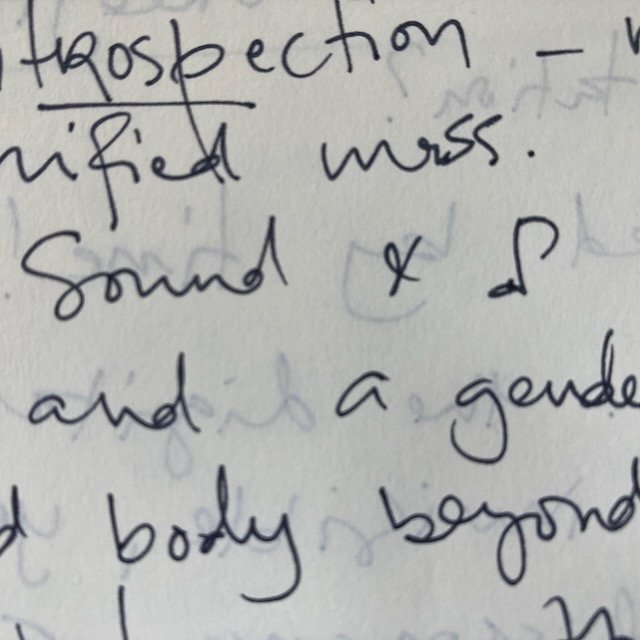 trospection –
nified
Sound & ♪
and a gende
d body beyond